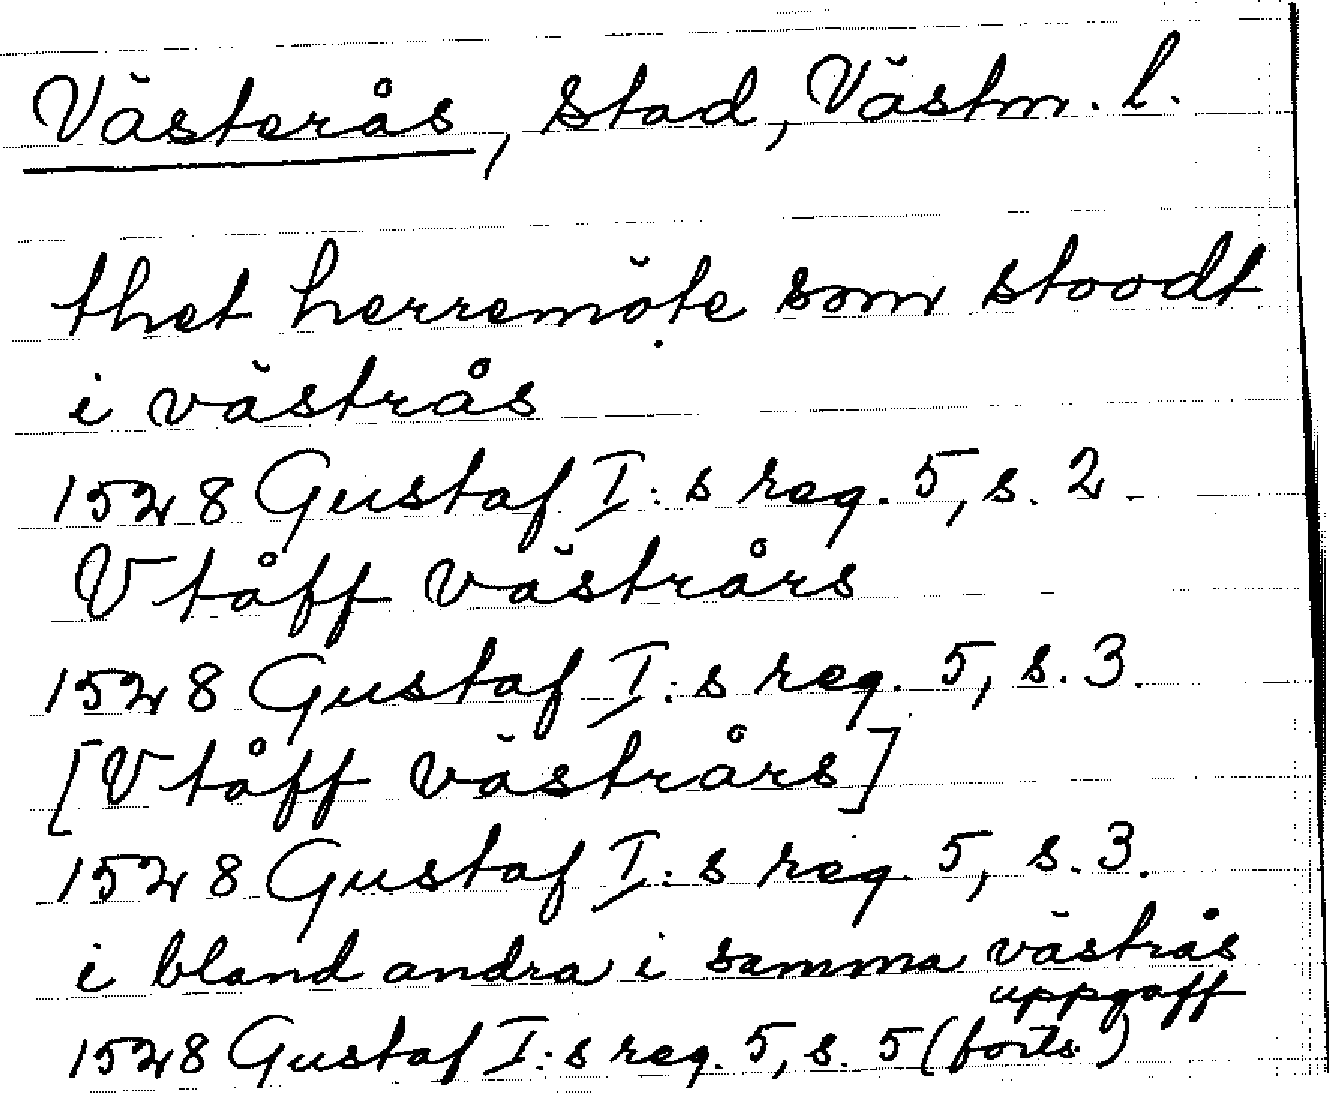 Västerås, stad, Västm. l.
thet herremöte som stoodt
i västrås
1528 Gustaf I:s reg. 5, s. 2.
Vtåff västrårs
1528 Gustaf I:s reg. 5, s. 3.
[Vtåff västrårs]
1528 Gustaf I:s reg. 5, s. 3.
i bland andra i samma västrås
uppgaff
1528 Gustaf I:s reg. 5, s. 5 (forts.)